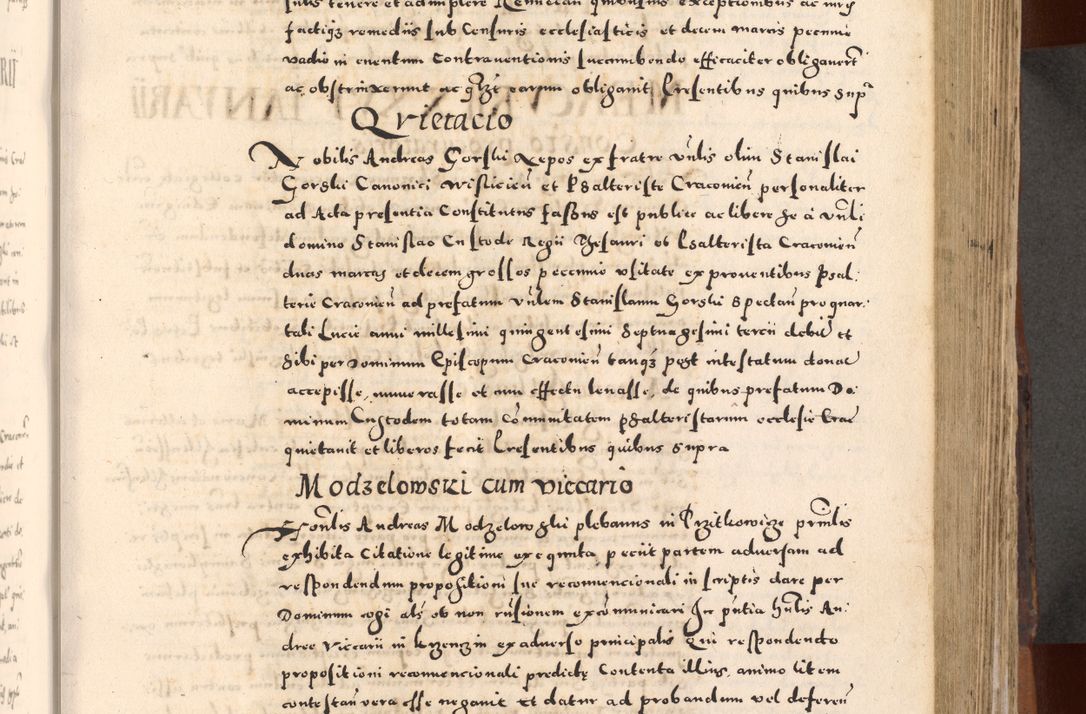 factiqз remediis sub Censuris ecclesiasticis et decem marcis pecunie
vadio in euentum Contrauentionis succumbendo efficaciter obligauerūt
ac obstrinxerunt ac obligauit Presentibus quibus supra
Qvietacio
Nobilis Andreas Gorski Nepos ex fratre vn̄lis olim Stanislai
Gorski Canonici wisliciēn et Psalteriste Cracouiēn personaliter
ad Acta presentia Constitutus fassus est publice ac libere se a vn̄li
domino Stanislao Custode Regii Thesauri ob Psalterista Cracouiēn
duas marcas et decem grossos pecunie vsitate ex prouentibus Psal-
terie Cracouiēn ad prefatum vn̄lem Stanislaum Gorski Spectaň pro quar-
tali Lucie anni millesimi quingentesimi Septuagesimi tercii debit et
Sibi per Dominum Episcopum Cracouiēn tanqз post intestatum donat
accepisse, numerasse et cum effectu leuasse, de quibus prefatum Do-
minum Custodem totam Comunitatem psalteristarum ecclesie Crac
quietauit et liberos fecit Presentibus quibus supra
Modzelowski cum viccario
Honlis Andreas Modzelowski plebanus in prn̄lis
exhibita Citatione legitime exequuta, peciit partem aduersam ad
respondendum propositioni sue reconuencionali in scriptis dare per
Dominum cogi als ob non rn̄sionem excōmunicari In pn̄tia hn̄lis An-
dree viccarii in ex aduerso principalis Qui respondendo
propositioni reconuencionali predictę Contenta illius, animo litem
contestan̄ vera esse negauit Et datur ad probandum vel deferen̄